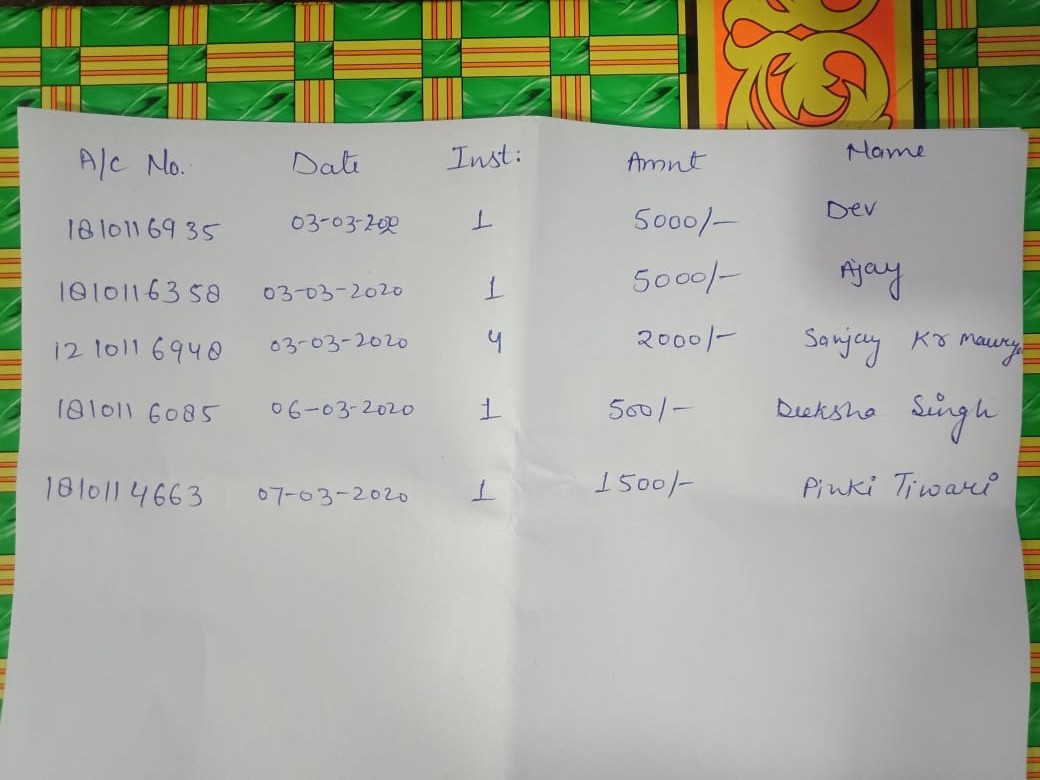 A/c No. Date Inst: Amnt Name
1810116935 03-03-202 1 5000/- Dev
1810116358 03-03-2020 1 5000/- Ajay
1210116948 03-03-2020 4 2000/- Sanjay Kr Maurya
1810116085 06-03-2020 1 500/- Deeksha Singh
1810114663 07-03-2020 1 1500/- Pinki Tiwari